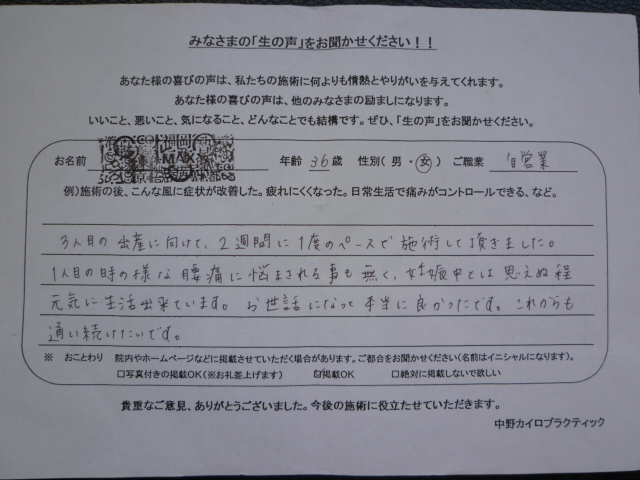 みなさまの「生の声」をお聞かせください！！
あなた様の喜びの声は、私たちの施術に何よりも情熱とやりがいを与えてくれます。
あなた様の喜びの声は、他のみなさまの励ましになります。
いいこと、悪いこと、気になること、どんなことでも結構です。ぜひ、「生の声」をお聞かせください。
お名前 年齢 36 歳 性別（ 男 ・ 女 ） ご職業 自営業
例）施術の後、こんな風に症状が改善した。疲れにくくなった。日常生活で痛みがコントロールできる、など。
3人目の出産に向けて、2週間に1度のペースで施術して頂きました。
1人目の時の様な腰痛に悩まされる事も無く、妊娠中とは思えぬ程
元気に生活出来ています。お世話になって本当に良かったです。これからも
通い続けたいです。
※ おことわり 院内やホームページなどに掲載させていただく場合があります。ご都合をお聞かせください（名前はイニシャルになります）。
□写真付きの掲載OK（※お礼差上げます） ☑掲載OK □絶対に掲載しないで欲しい
貴重なご意見、ありがとうございました。今後の施術に役立たせていただきます。
中野カイロプラクティック